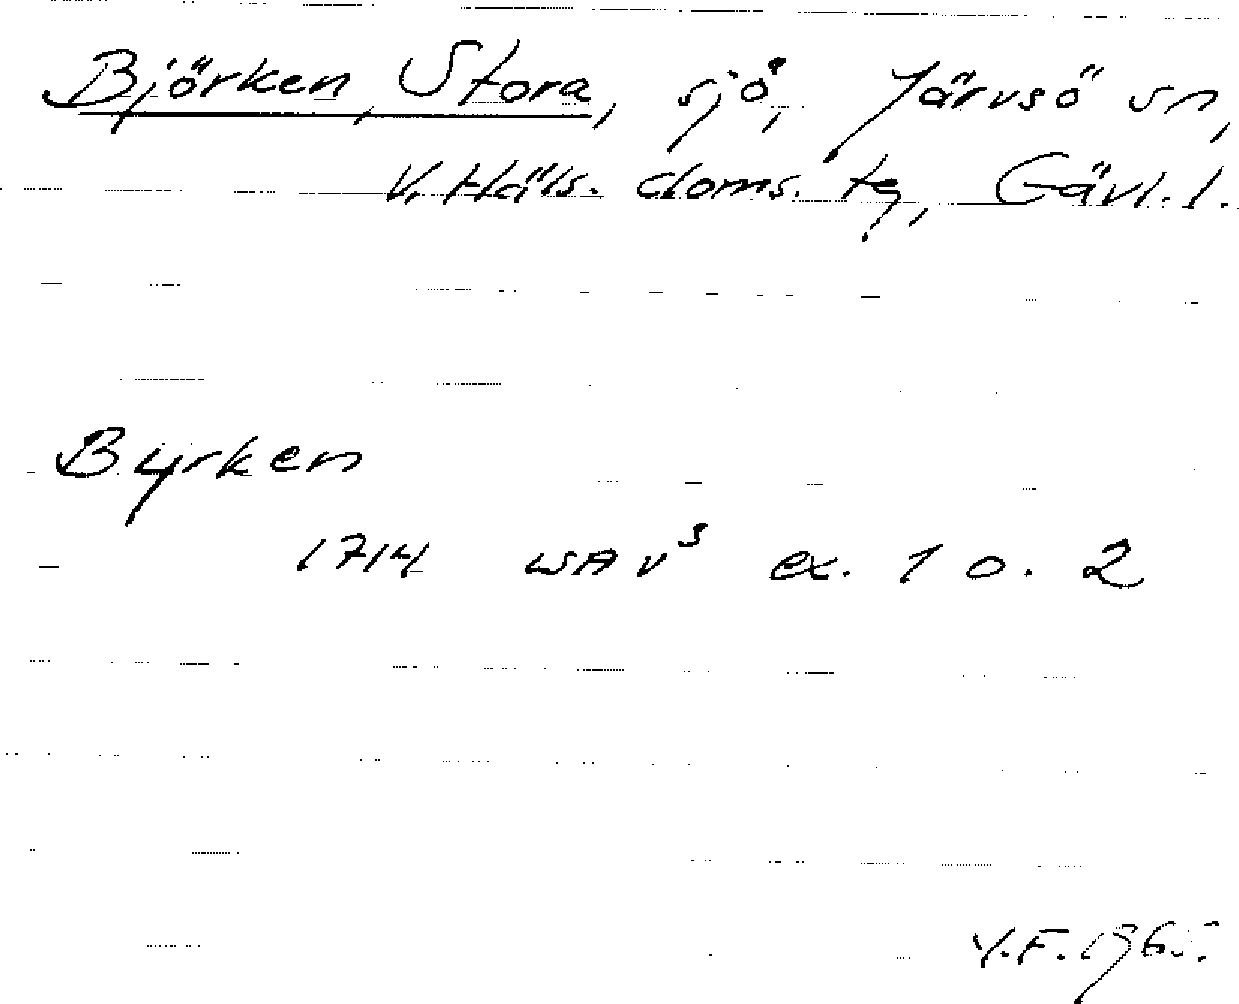 Björken, Stora, sjö, Järvsö sn,
V. Häls. doms. tg, Gävl. l.
Byrken
1714 WAv³ ex. 1 o. 2
Y.F. 1965